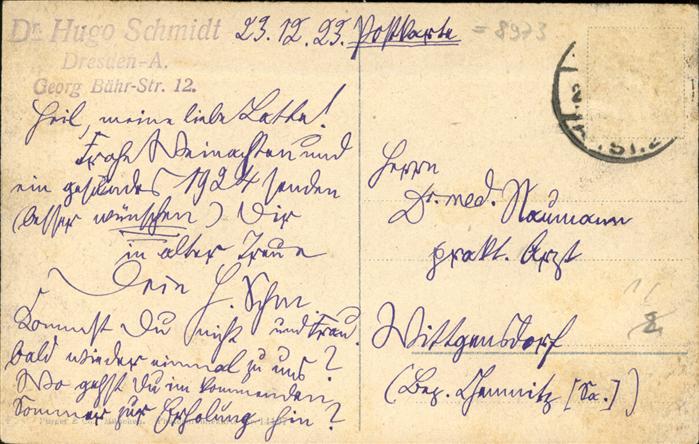 Dr. Hugo Schmidt
Dresden-A.
Georg Bähr-Str. 12.
23.12.23. Postkarte
= 8973
Heil, meine liebe Latte!
Frohe Weinachten und
ein gesundes 1924 senden
(besser wünschen) Dir
in alter Treue
Dein H. Schm.
und Frau.
Kommst Du nicht
bald wieder einmal zu uns?
Wo gehst Du im kommenden
Sommer zur Erholung hin?
Herrn
Dr. med. Naumann
prakt. Arzt
Wittgensdorf
(Bez. Chemnitz [Sa.])